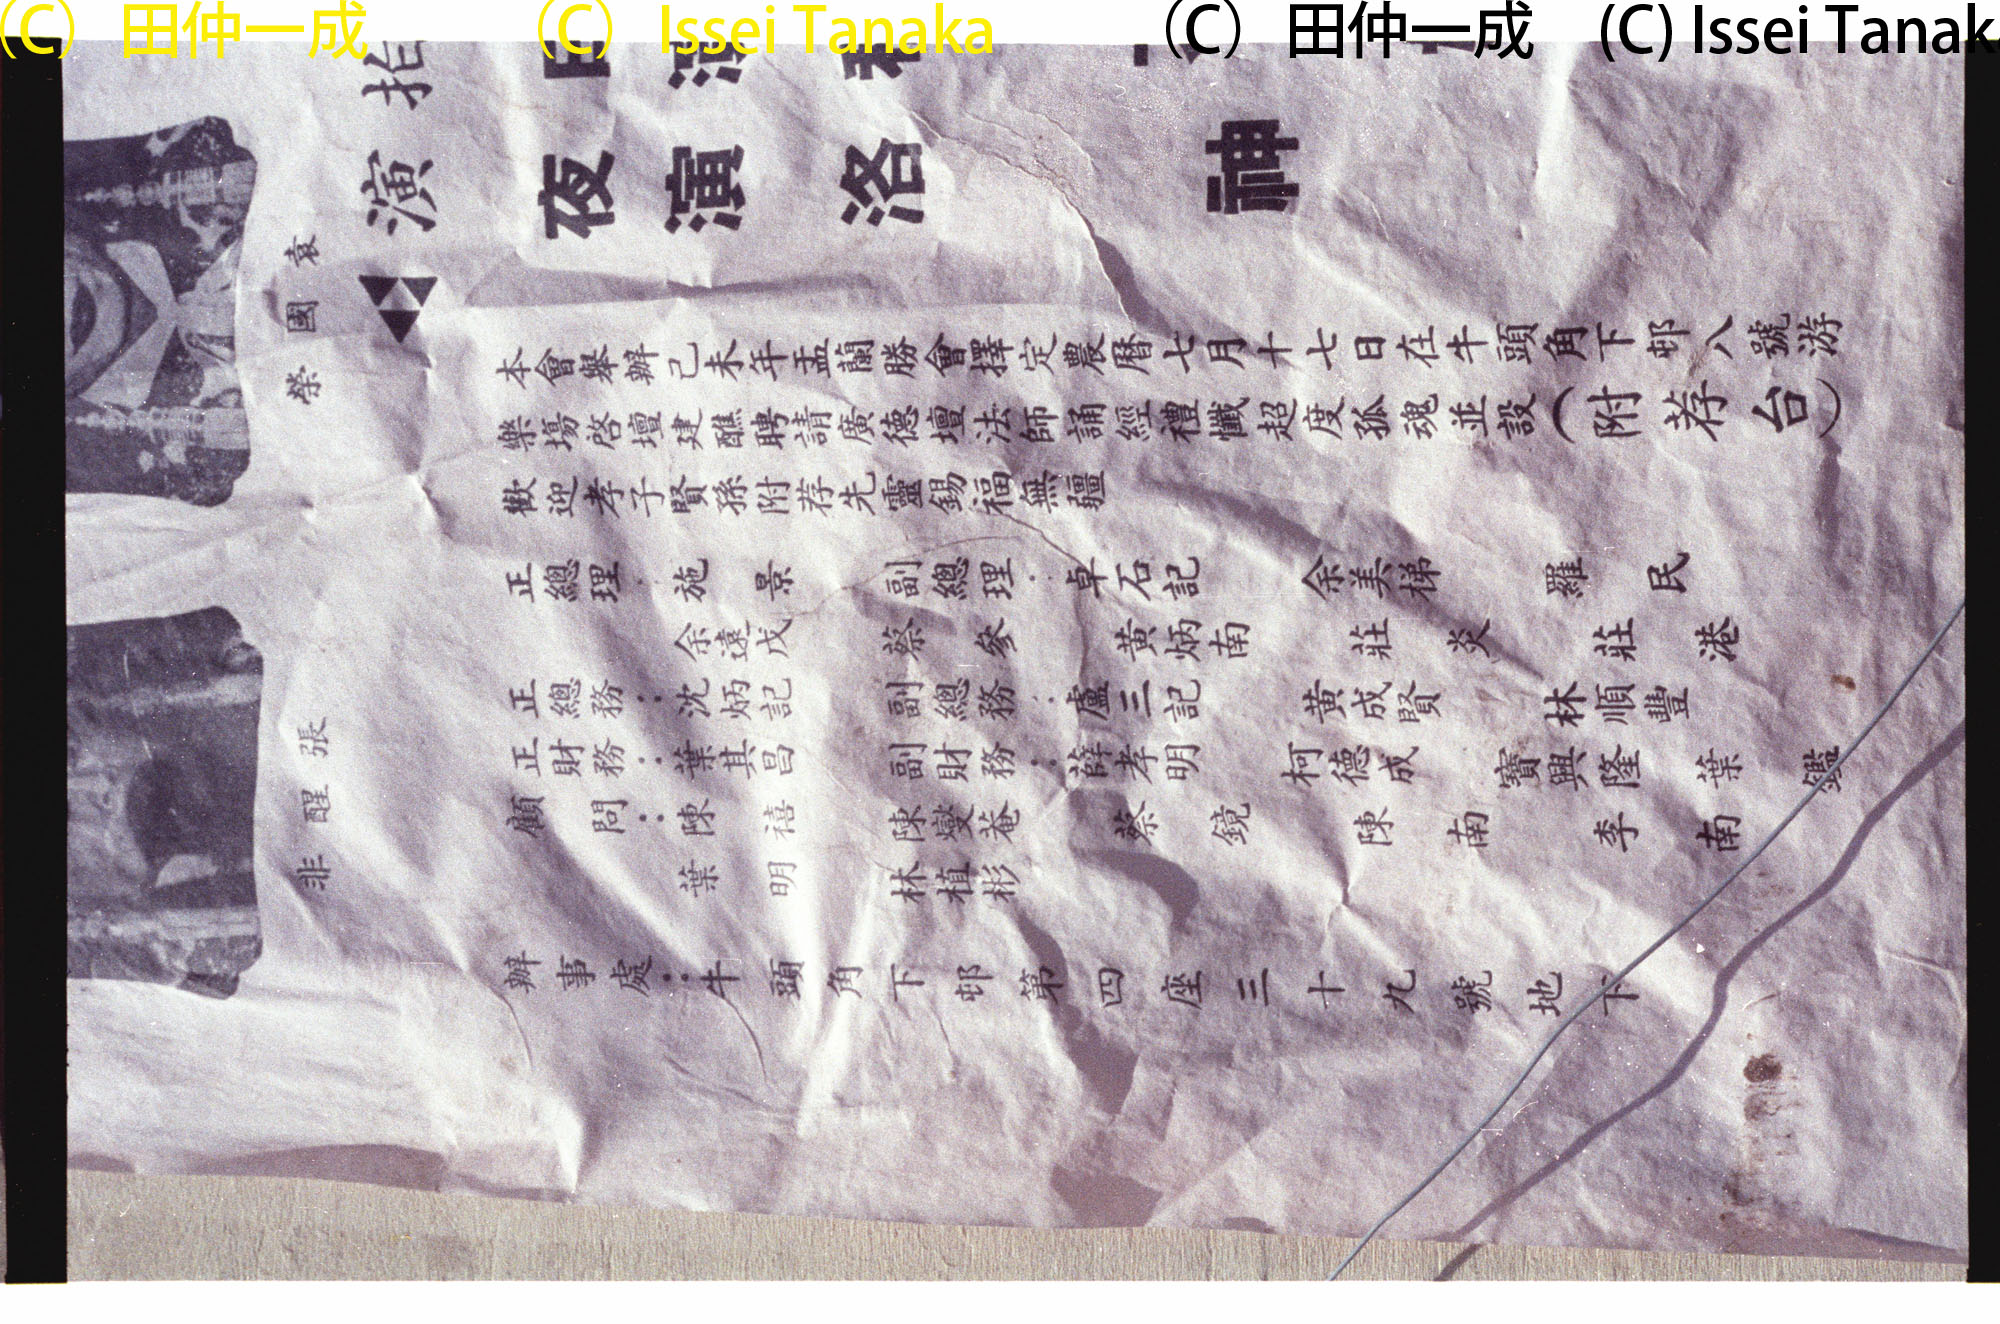 (C) 田仲一成 (C) Issei Tanaka (C) 田仲一成 (C) Issei Tanak
演 夜演 洛 神
袁國榮
本會舉辦己未年盂蘭勝會擇定農曆七月十七日在牛頭角下邨八號游
樂場啓壇建醮聘請廣德壇法師誦經禮懺超度孤魂並設(附荐台)
歡迎孝子賢孫附荐先靈錫福無疆
正總理：施景 副總理：卓石記 余美梯 羅民
余遠戊 蔡參 黃炳南 莊炎 莊港
正總務：沈炳記 副總務：盧三記 黃成賢 林順豐
正財務：葉其昌 副財務：薛孝明 柯德成 寶興隆 葉鑑
顧問：陳禧 陳燮菴 蔡鏡 陳南 李南
葉明 林植彬
張醒非
辦事處：牛頭角下邨第四座三十九號地下